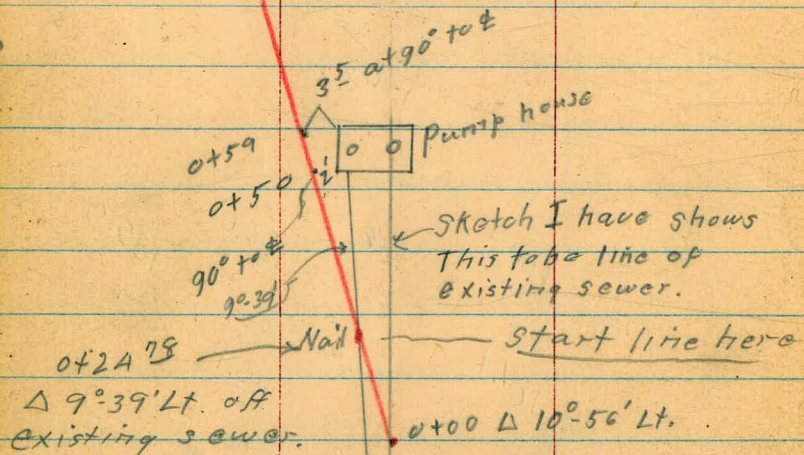 3⁵ at 90° to ℄
Pump house
0+59
0+50
2'
90° to ℄
9°-39'
Sketch I have shows
This to be line of
existing sewer.
Nail
Start line here
0+24⁷⁸
Δ 9°-39' Lt. off
existing sewer.
0+00 Δ 10°-56' Lt.